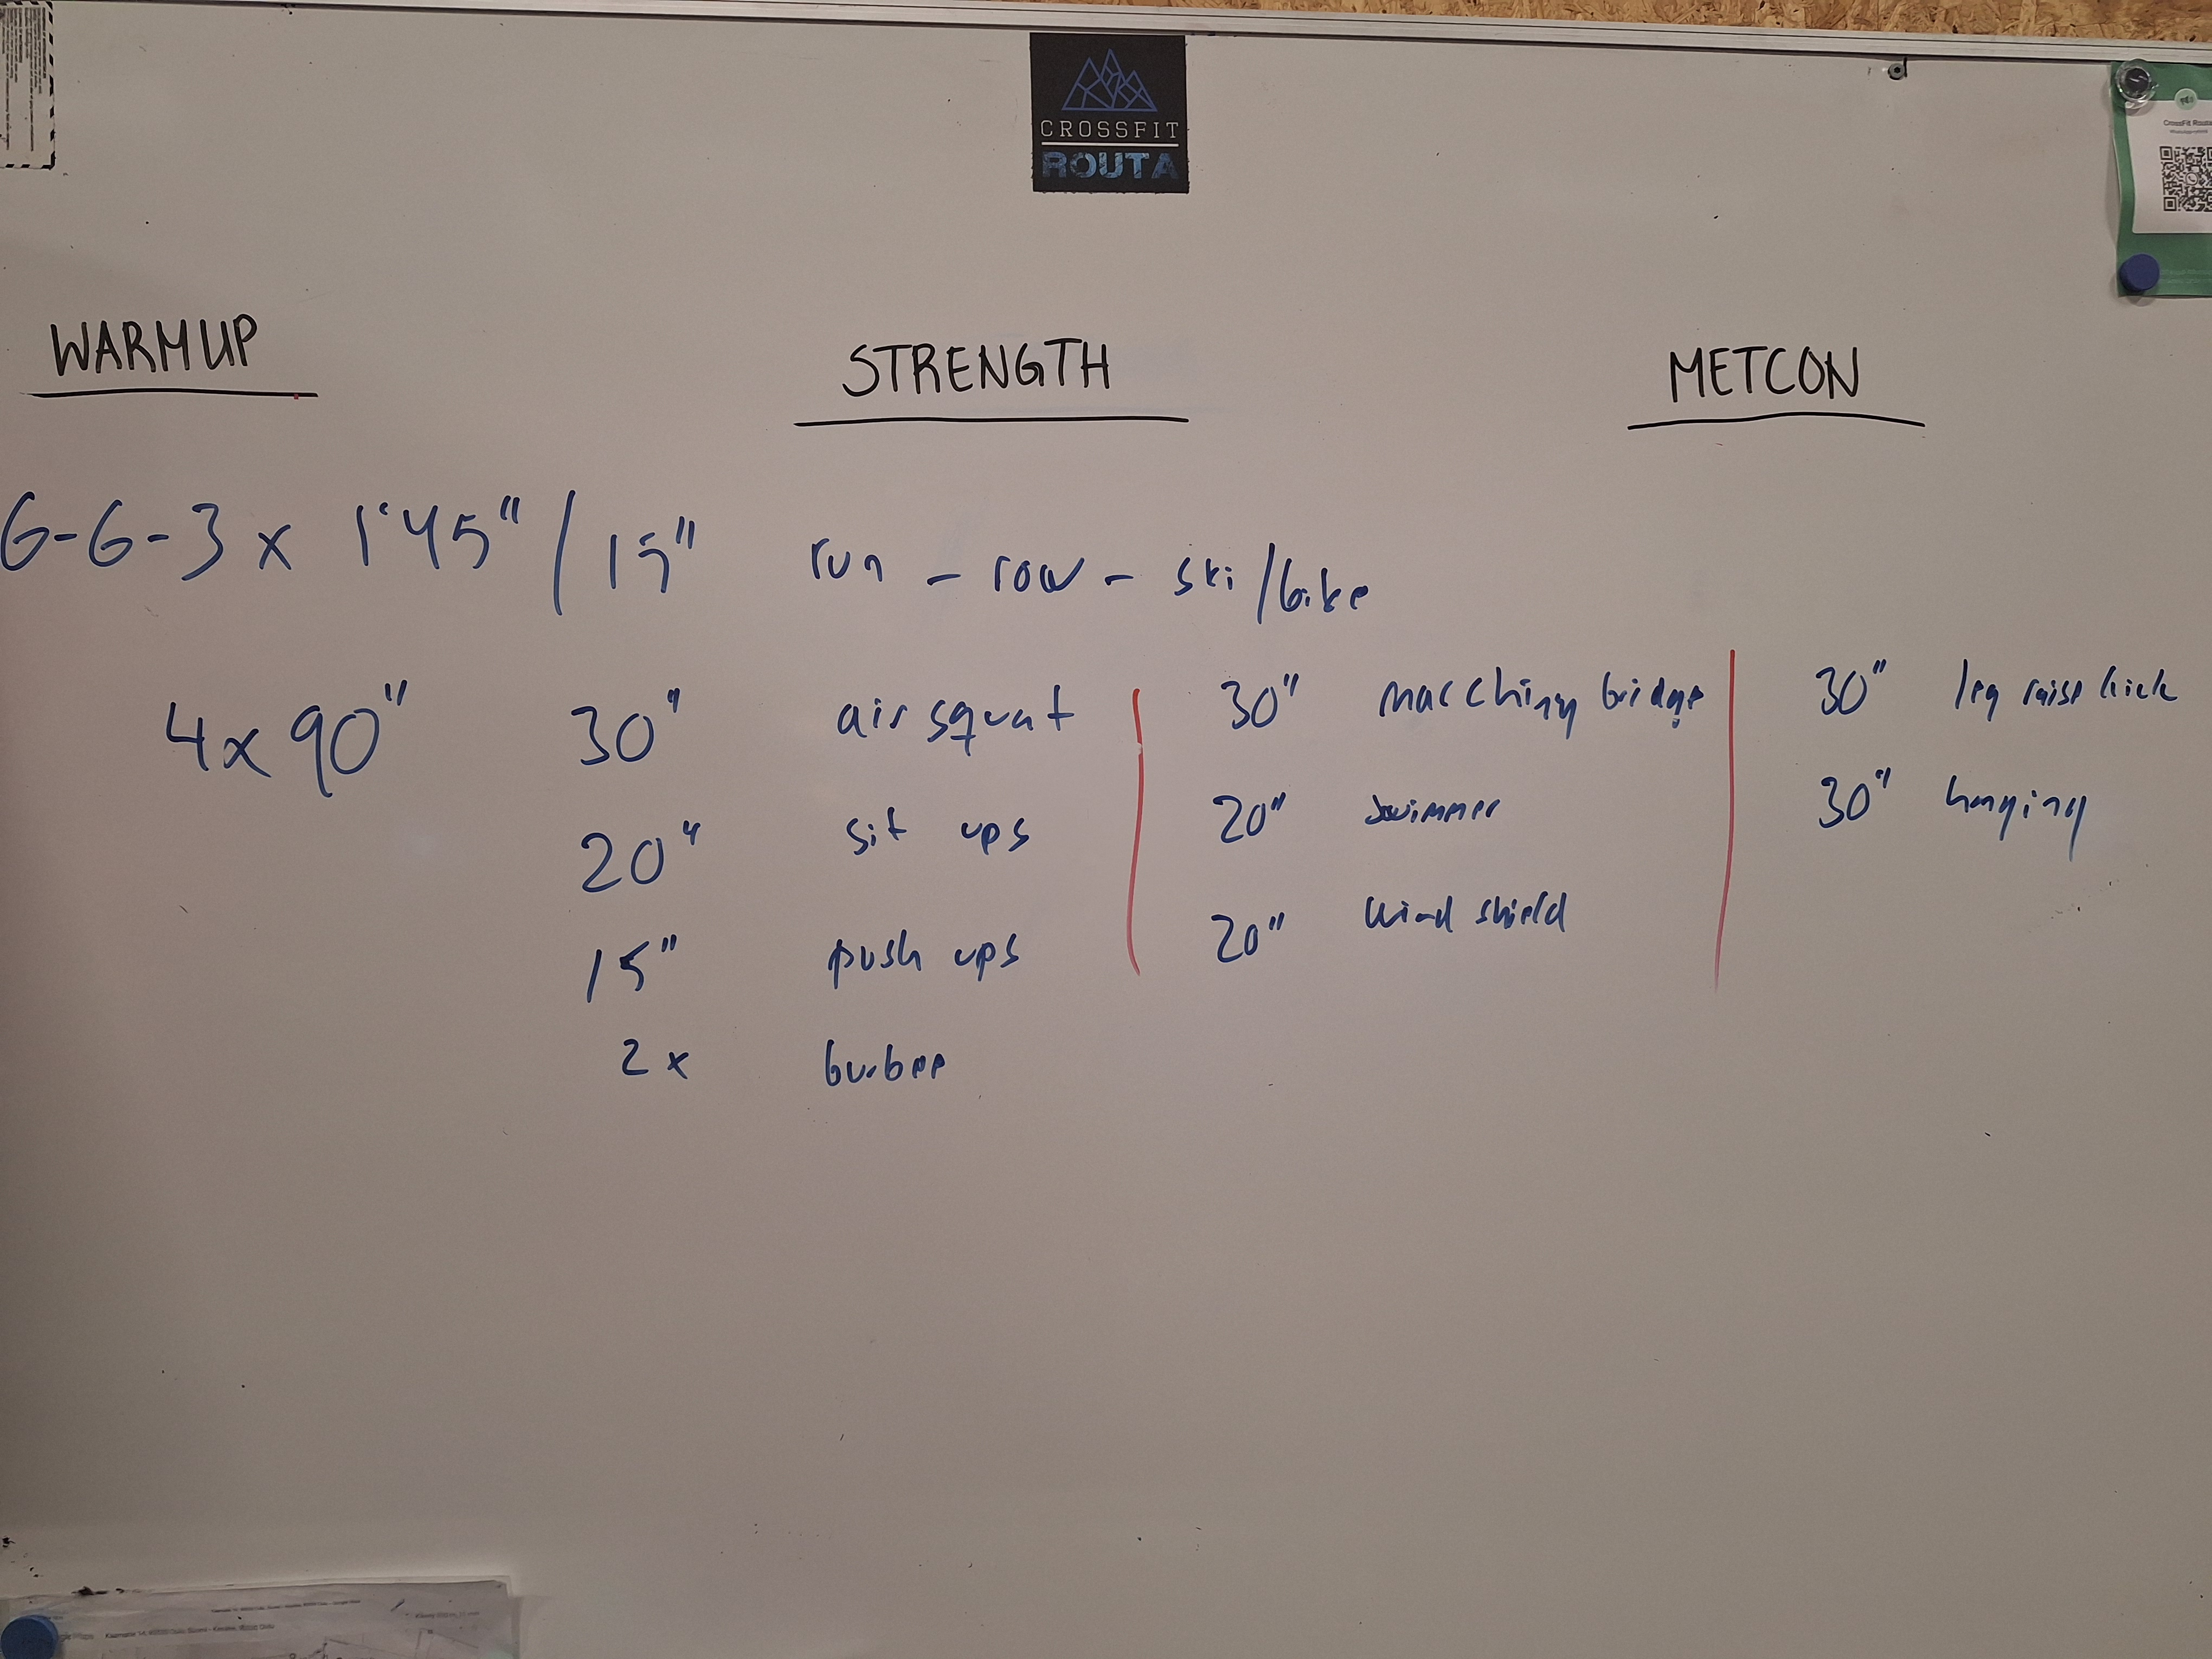 CROSSFIT
ROUTA
CrossFit Routa
WARMUP
STRENGTH
METCON
6-6-3 x 1'45" / 15" run - row - ski/bike
4x90" 30" air squat 30" marching bridge 30" leg raise kick
20" sit ups 20" swimmer 30" hanging
15" push ups 20" wind shield
2x burbee